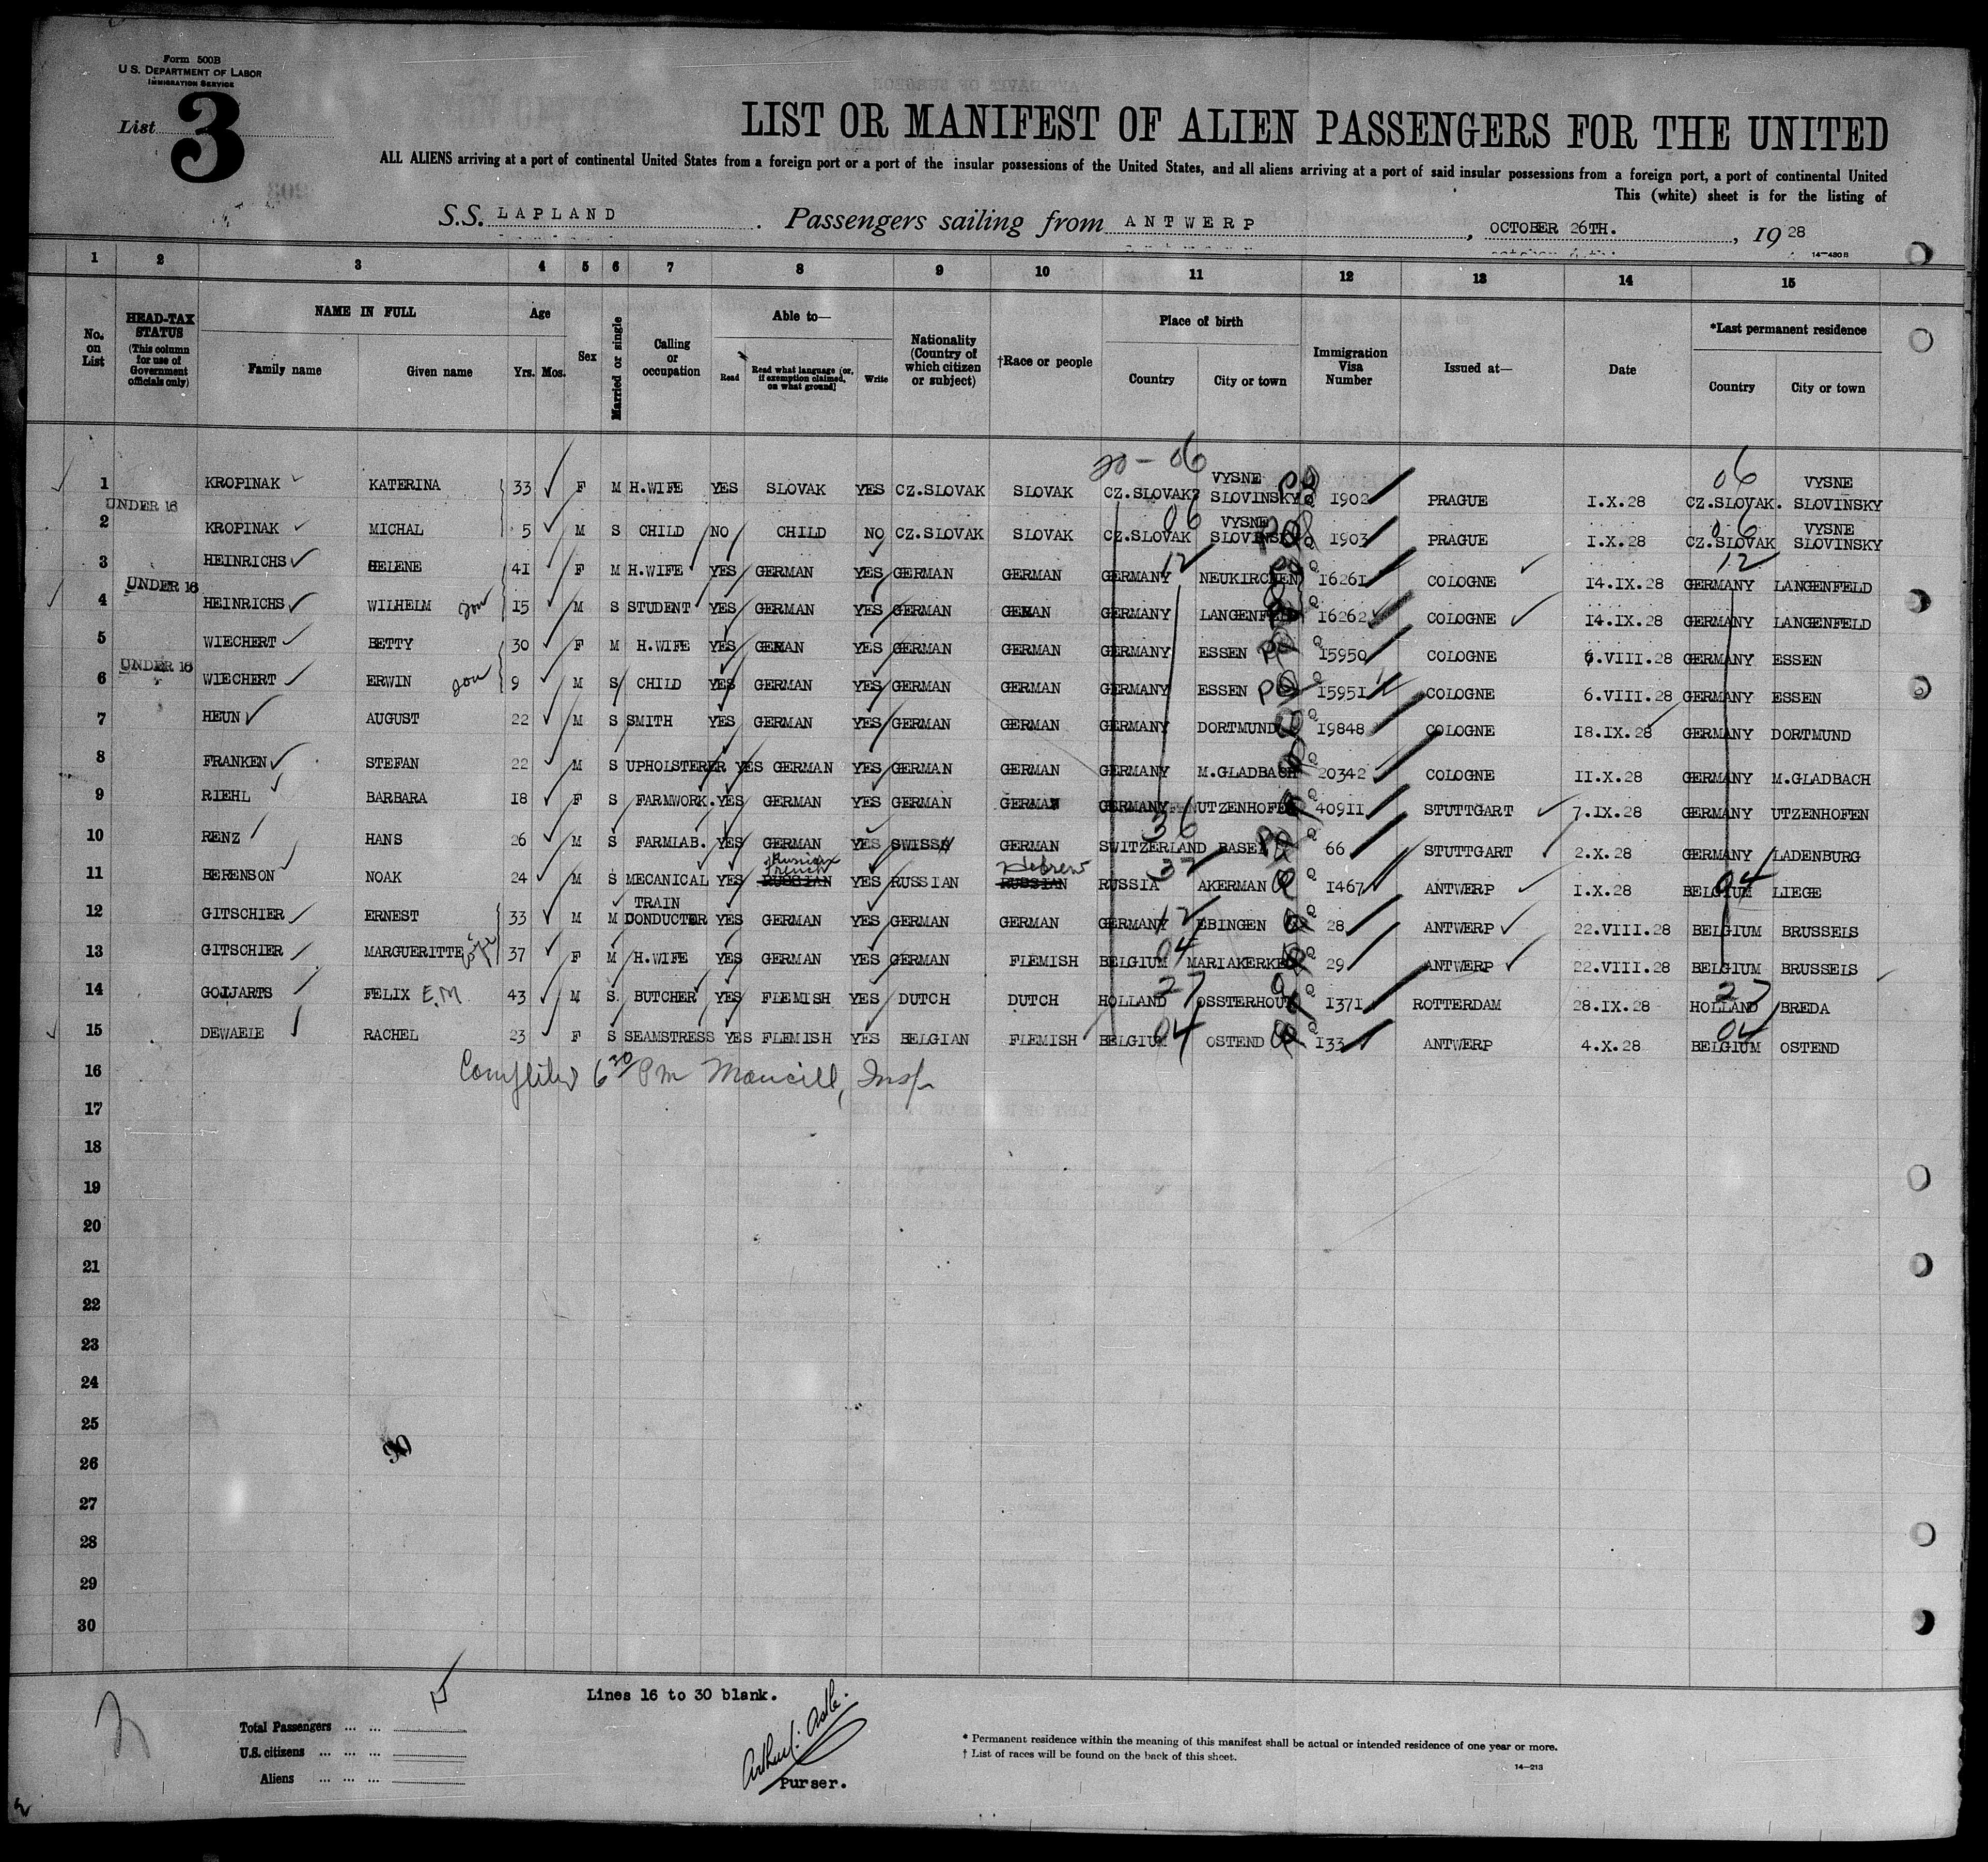 Form 500B
U.S. DEPARTMENT OF LABOR
IMMIGRATION SERVICE
List 3
LIST OR MANIFEST OF ALIEN PASSENGERS FOR THE UNITED
ALL ALIENS arriving at a port of continental United States from a foreign port or a port of the insular possessions of the United States, and all aliens arriving at a port of said insular possessions from a foreign port, a port of continental United
This (white) sheet is for the listing of
S.S. LAPLAND. Passengers sailing from ANTWERP, OCTOBER 26TH., 1928
14—480 B
1 2 3 4 5 6 7 8 9 10 11 12 13 14 15
No. on List
HEAD-TAX STATUS (This column for use of Government officials only)
NAME IN FULL
Family name Given name
Age
Yrs. Mos.
Sex
Married or single
Calling or occupation
Able to—
Read Read what language (or, if exemption claimed, on what ground) Write
Nationality (Country of which citizen or subject)
†Race or people
Place of birth
Country City or town
Immigration Visa Number
Issued at—
Date
*Last permanent residence
Country City or town
20 - 06 06
1 KROPINAK KATERINA 33 F M H.WIFE YES SLOVAK YES CZ.SLOVAK SLOVAK CZ.SLOVAK VYSNE SLOVINSKY 1902 PRAGUE I.X.28 CZ.SLOVAK. VYSNE SLOVINSKY
UNDER 16 06 06
2 KROPINAK MICHAL 5 M S CHILD NO CHILD NO CZ.SLOVAK SLOVAK CZ.SLOVAK VYSNE SLOVINSKY 1903 PRAGUE I.X.28 CZ.SLOVAK VYSNE SLOVINSKY
12 12
3 HEINRICHS HELENE 41 F M H.WIFE YES GERMAN YES GERMAN GERMAN GERMANY NEUKIRCHEN Q 16261 COLOGNE 14.IX.28 GERMANY LANGENFELD
UNDER 16
4 HEINRICHS WILHELM son 15 M S STUDENT YES GERMAN YES GERMAN GEMAN GERMANY LANGENFELD Q 16262 COLOGNE 14.IX.28 GERMANY LANGENFELD
5 WIECHERT BETTY 30 F M H.WIFE YES GEMAN YES GERMAN GERMAN GERMANY ESSEN Q 15950 COLOGNE 6.VIII.28 GERMANY ESSEN
UNDER 16
6 WIECHERT ERWIN son 9 M S CHILD YES GERMAN YES GERMAN GERMAN GERMANY ESSEN 15951 COLOGNE 6.VIII.28 GERMANY ESSEN
7 HEUN AUGUST 22 M S SMITH YES GERMAN YES GERMAN GERMAN GERMANY DORTMUND Q 19848 COLOGNE 18.IX.28 GERMANY DORTMUND
8 FRANKEN STEFAN 22 M S UPHOLSTERER YES GERMAN YES GERMAN GERMAN GERMANY M.GLADBACH 20342 COLOGNE II.X.28 GERMANY M.GLADBACH
9 RIEHL BARBARA 18 F S FARMWORK. YES GERMAN YES GERMAN GERMAN GERMANY UTZENHOFEN Q 40911 STUTTGART 7.IX.28 GERMANY UTZENHOFEN
36
10 RENZ HANS 26 M S FARMLAB. YES GERMAN YES SWISS GERMAN SWITZERLAND BASEL Q 66 STUTTGART 2.X.28 GERMANY LADENBURG
Russian French Hebrew 37 04
11 BERENSON NOAK 24 M S MECANICAL YES RUSSIAN YES RUSSIAN RUSSIAN RUSSIA AKERMAN Q 1467 ANTWERP I.X.28 BELGIUM LIEGE
12
12 GITSCHIER ERNEST 33 M M TRAIN CONDUCTOR YES GERMAN YES GERMAN GERMAN GERMANY EBINGEN Q 28 ANTWERP 22.VIII.28 BELGIUM BRUSSELS
04
13 GITSCHIER MARGUERITTE wife 37 F M H.WIFE YES GERMAN YES GERMAN FLEMISH BELGIUM MARIAKERKE Q 29 ANTWERP 22.VIII.28 BELGIUM BRUSSELS
27 27
14 GOIJARTS FELIX E.M. 43 M S. BUTCHER YES FLEMISH YES DUTCH DUTCH HOLLAND OSSTERHOUT Q 1371 ROTTERDAM 28.IX.28 HOLLAND BREDA
04 04
15 DEWAELE RACHEL 23 F S SEAMSTRESS YES FLEMISH YES BELGIAN FLEMISH BELGIUM OSTEND Q 133 ANTWERP 4.X.28 BELGIUM OSTEND
16 6 30 PM Insp.
17
18
19
20
21
22
23
24
25
26
27
28
29
30
Lines 16 to 30 blank.
Total Passengers ... ...
U.S. citizens ... ... ...
Aliens ... ... ...
Purser.
* Permanent residence within the meaning of this manifest shall be actual or intended residence of one year or more.
† List of races will be found on the back of this sheet.
14—213